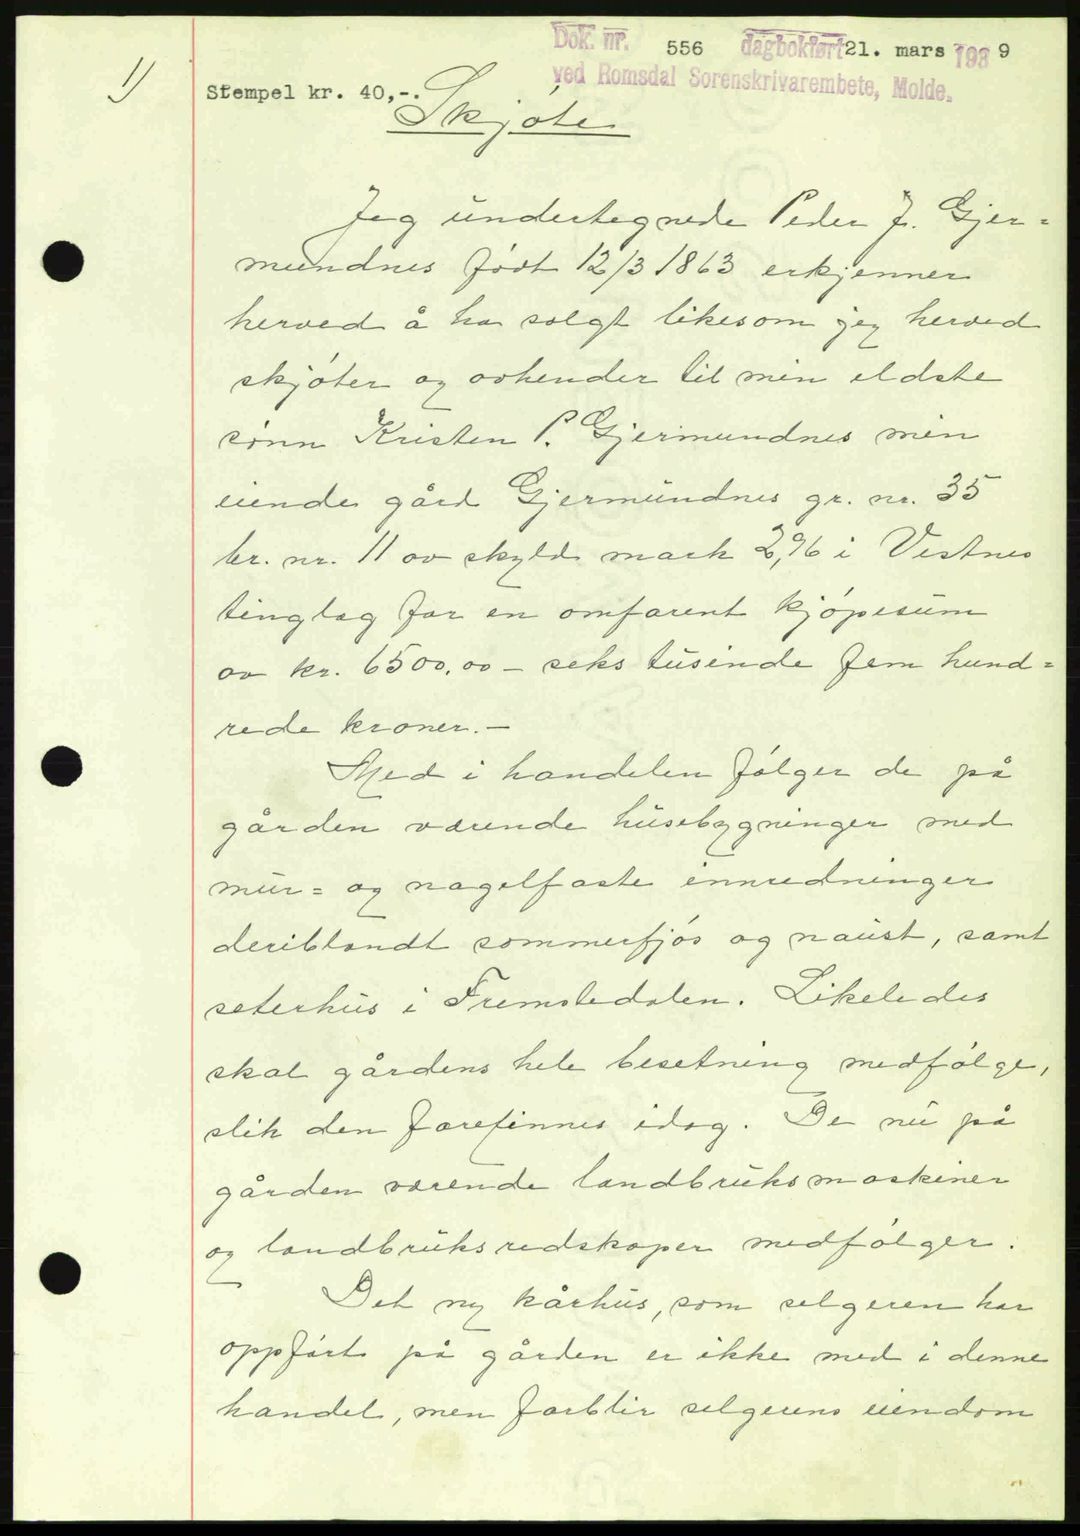 1)
Dok. nr. 556 dagbokført 21. mars 1939
ved Romsdal Sorenskrivarembete, Molde.
Stempel kr. 40,-.
Skjøte
Jeg undertegnede Peder J. Gjer=
mundnes født 12/3 1863 erkjenner
herved å ha solgt likesom jeg herved
skjøter og avhender til min eldste
sønn Kristen P. Gjermundnes min
eiende gård Gjermundnes gr. nr. 35
br. nr. 11 av skyld mark 2,96 i Vestnes
tinglag for en omforent kjøpesum
av kr. 6500,00 - seks tusinde fem hund=
rede kroner. -
Med i handelen følger de på
gården værende husebygninger med
mur= og nagelfaste innredninger
deriblandt sommerfjøs og naust, samt
seterhus i Fremstedalen. Likeledes
skal gårdens hele besetning medfølge,
slik den forefinnes idag. De nu på
gården værende landbruksmaskiner
og landbruksredskaper medfølger.
Det ny kårhus, som selgeren har
oppført på gården er ikke med i denne
handel, men forblir selgerens eiendom